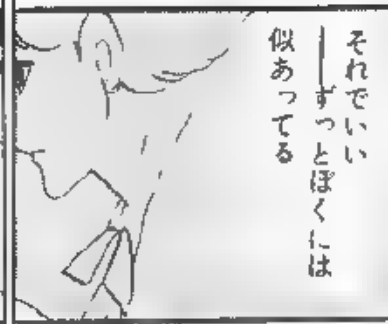 それでいい
──ずっとぼくには
似あってる